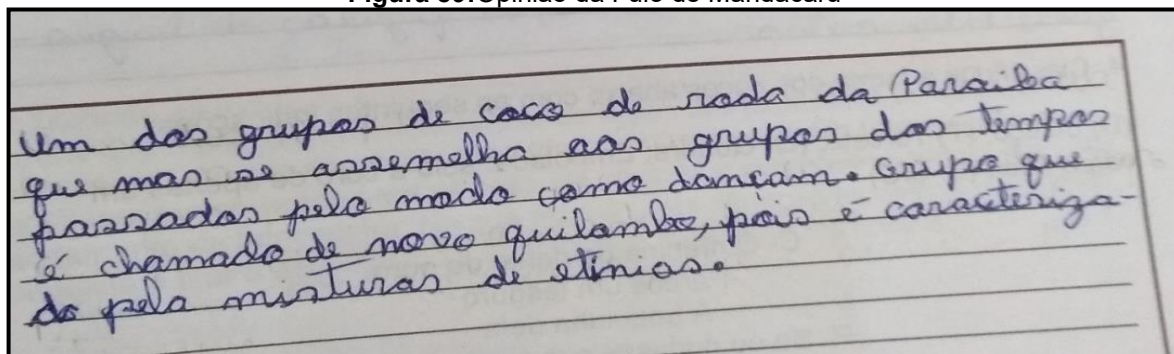 Figura 39:Opinião da Pule do Mandacaru
Um dos grupos de coco de roda da Paraiba
que mas se assemelha aos grupos dos tempos
passados pelo modo como dançam. Grupo que
é chamado de novo quilombo, pois é caracteriza-
do pela misturas de etinias.